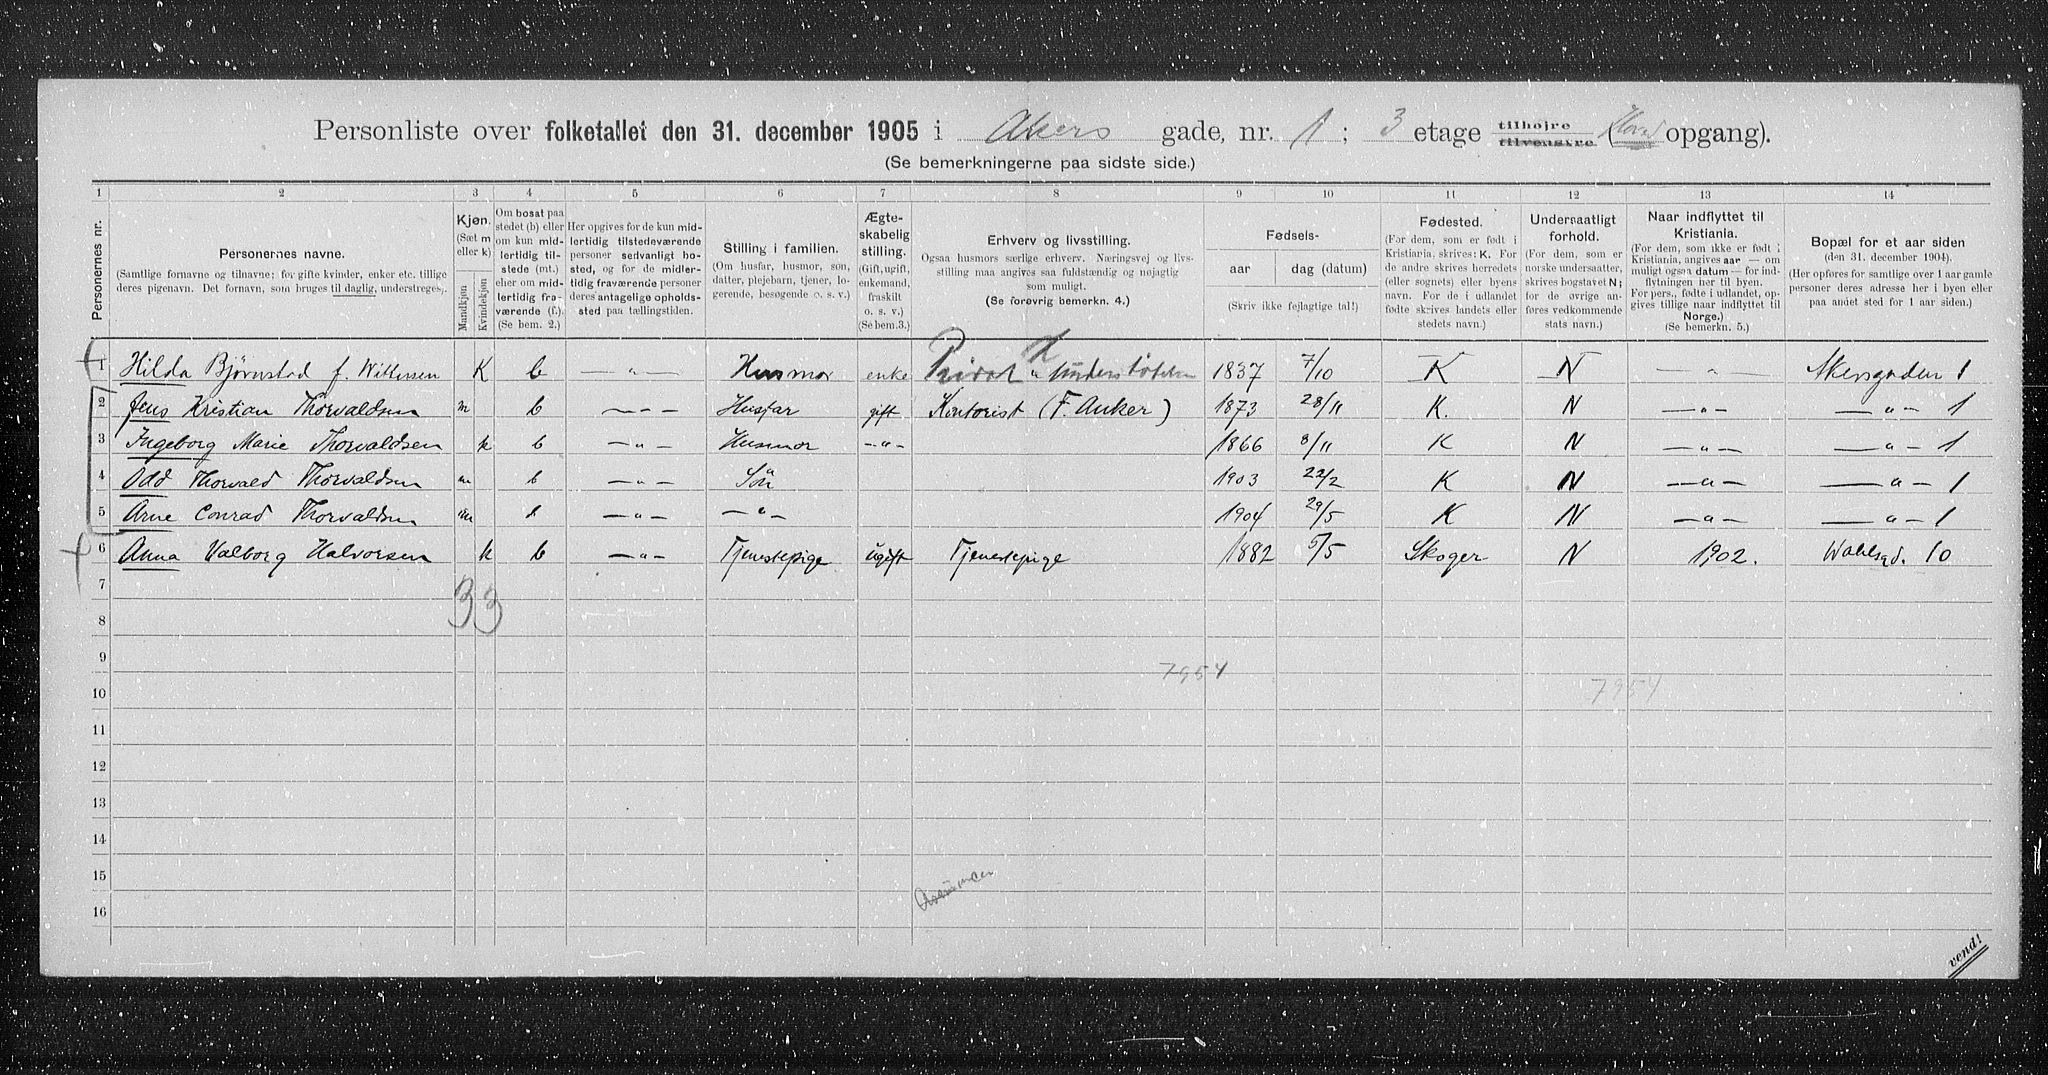 Personliste over folketallet den 31. december 1905 i Akers gade, nr. 1; 3 etage tilhøjre tilvenstre (Hoved opgang).
(Se bemerkningerne paa sidste side.)
1 2 3 4 5 6 7 8 9 10 11 12 13 14
Personernes nr.
Personernes navne.
(Samtlige fornavne og tilnavne; for gifte kvinder, enker etc. tillige deres pigenavn. Det fornavn, som bruges til daglig, understreges.)
Kjøn.
(Sæt m eller k)
Mandkjøn
Kvindekjøn
Om bosat paa stedet (b) eller om kun midlertidig tilstede (mt.) eller om midlertidig fraværende (f.).
(Se bem. 2.)
Her opgives for de kun midlertidig tilstedeværende personer sedvanlig bosted, og for de midlertidig fraværende personer deres antagelige opholdssted paa tællingstiden.
Stilling i familien.
(Om husfar, husmor, søn, datter, plejebarn, tjener, logerende, besøgende o. s. v.)
Ægteskabelig stilling.
(Gift, ugift, enkemand, fraskilt o. s. v.)
(Se bem.3.)
Erhverv og livsstilling.
Ogsaa husmors særlige erhverv. Næringsvej og livsstilling maa angives saa fuldstændig og nøjagtig som muligt.
(Se forøvrig bemerkn. 4.)
Fødsels-
aar dag (datum)
(Skriv ikke fejlagtige tal!)
Fødested.
(For dem, som er født i Kristiania, skrives: K. For de andre skrives herredets (eller sognets) eller byens navn. For de i udlandet fødte skrives landets eller stedets navn.)
Undersaatligt forhold.
(For dem, som er norske undersaatter, skrives bogstavet N; for de øvrige anføres vedkommende stats navn.)
Naar indflyttet til Kristiania.
(For dem, som ikke er født i Kristiania, angives aar — om muligt ogsaa datum — for indflytningen her til byen. For pers., fødte i udlandet, opgives tillige naar indflyttet til Norge.)
(Se bemerkn. 5.)
Bopæl for et aar siden
(den 31. december 1904).
(Her opføres for samtlige over 1 aar gamle personer deres adresse her i byen eller paa andet sted for 1 aar siden.)
1 Hilda Bjørnstad f. K b — „ — Husmor enke Privat 1837 7/10 K N — „ — Akersgaden 1
2 Jens Kristian Thorvaldsen m b — „ — Husfar gift Kontorist (F. Anker) 1873 28/11 K. N — „ — — „ — 1
3 Ingeborg Marie Thorvaldsen k b — „ — Husmor — „ — 1866 8/11 K N — „ — — „ — 1
4 Odd Thorvald Thorvaldsen m b — „ — Søn 1903 22/2 K N — „ — — „ — 1
5 Arne Conrad Thorvaldsen m b — „ — — „ — 1904 29/5 K N — „ — — „ — 1
6 Anna Valborg Halvorsen k b — „ — Tjenestepige ugift Tjenestepige 1882 5/5 Skoger N 1902. Wahlsgd. 10
7
33
8
9
7954
10
7954
11
12
13
14
15
16
vend!